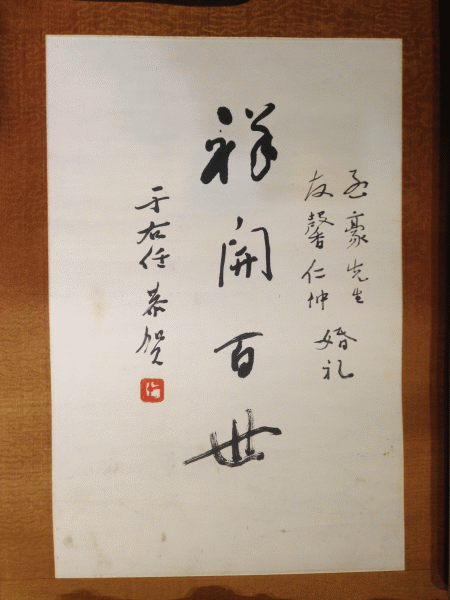 豪先生
友馨仁仲 婚礼
祥開百世
于右任 恭賀